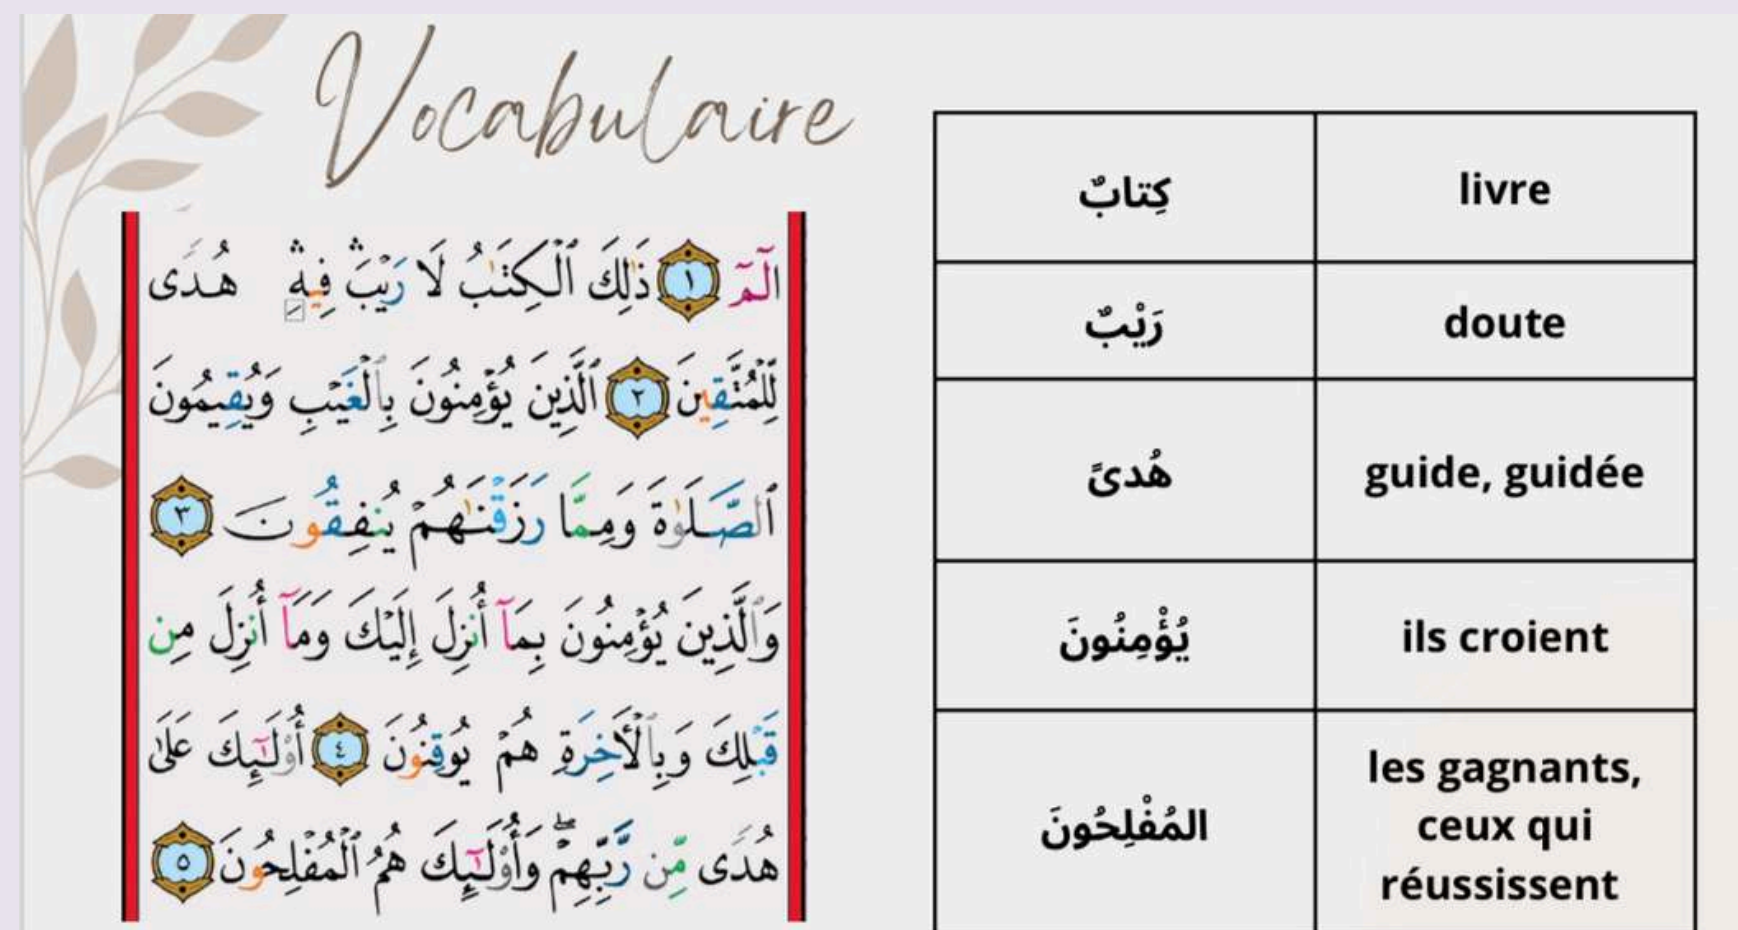 Vocabulaire
الٓمٓ ١ ذَٰلِكَ ٱلْكِتَٰبُ لَا رَيْبَ ۛ فِيهِ ۛ هُدًى
لِّلْمُتَّقِينَ ٢ ٱلَّذِينَ يُؤْمِنُونَ بِٱلْغَيْبِ وَيُقِيمُونَ
ٱلصَّلَوٰةَ وَمِمَّا رَزَقْنَٰهُمْ يُنفِقُونَ ٣
وَٱلَّذِينَ يُؤْمِنُونَ بِمَآ أُنزِلَ إِلَيْكَ وَمَآ أُنزِلَ مِن
قَبْلِكَ وَبِٱلْأَخِرَةِ هُمْ يُوقِنُونَ ٤ أُو۟لَٰٓئِكَ عَلَىٰ
هُدًى مِّن رَّبِّهِمْ ۖ وَأُو۟لَٰٓئِكَ هُمُ ٱلْمُفْلِحُونَ ٥
كِتابٌ
livre
رَيْبٌ
doute
هُدىً
guide, guidée
يُؤْمِنُونَ
ils croient
المُفْلِحُونَ
les gagnants,
ceux qui
réussissent